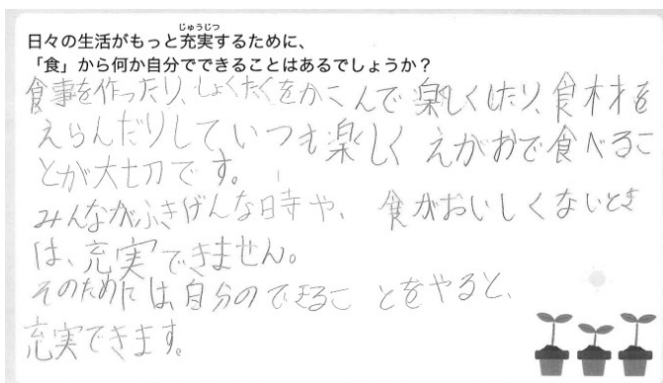 じゅうじつ
日々の生活がもっと充実するために、
「食」から何か自分でできることはあるでしょうか？
食事を作ったり、しょくたくをかこんで楽しくしたり、食材を
えらんだりしていつも楽しくえがおで食べるこ
とが大切です。
みんながふきげんな時や、食がおいしくないとき
は、充実できません。
そのためには、自分のできることをやると、
充実できます。